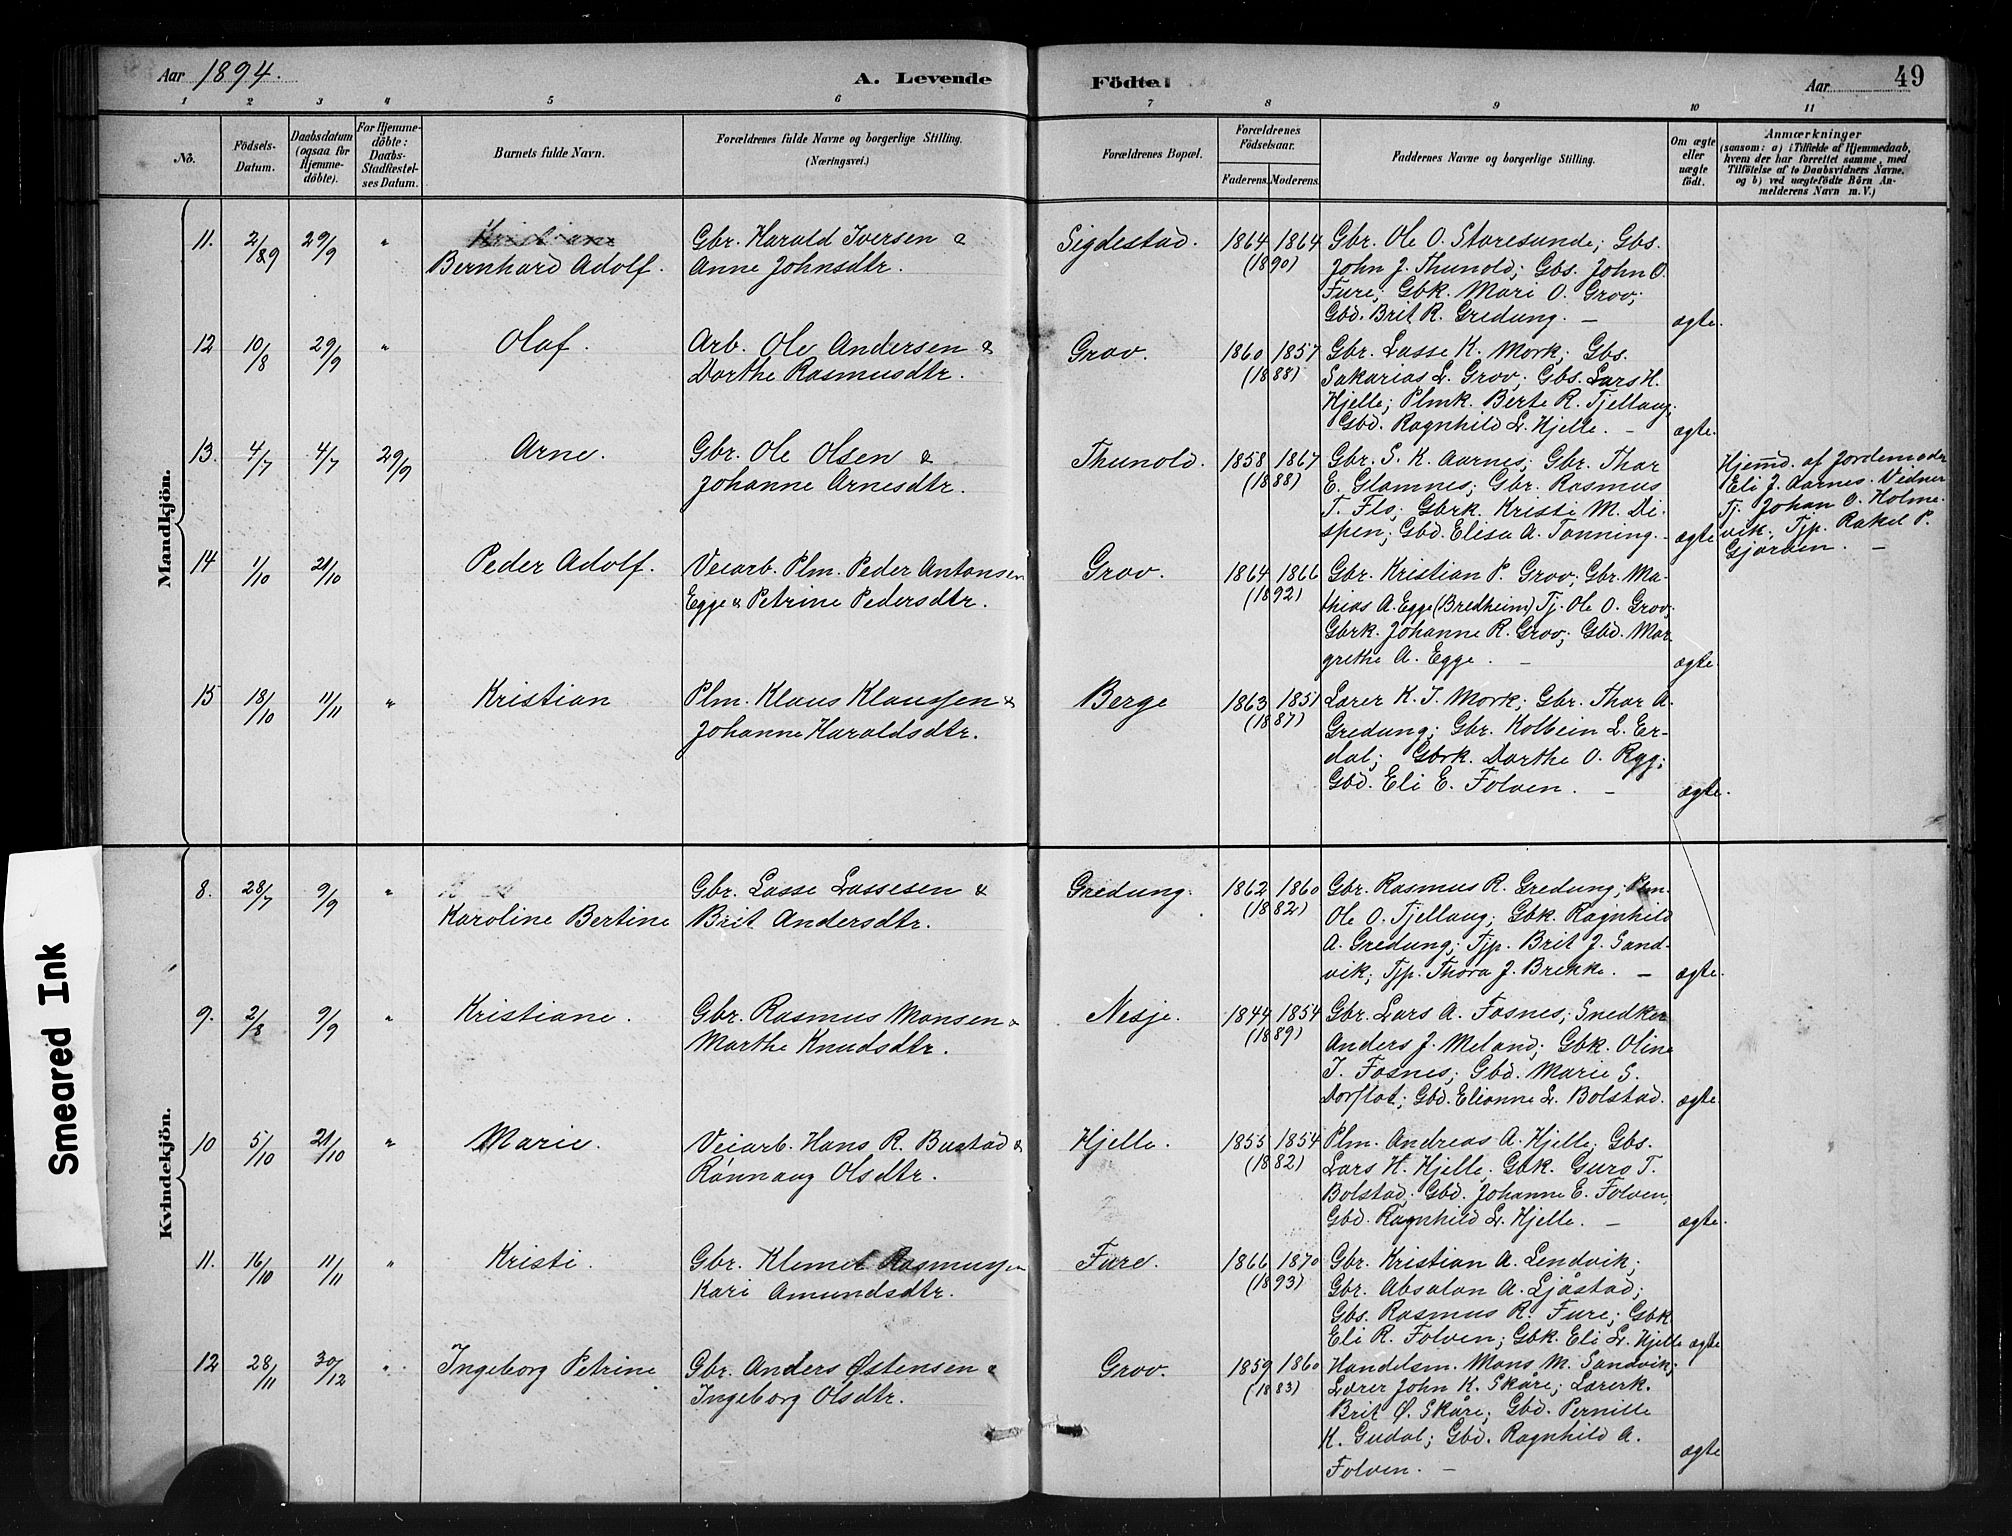 Aar 1894.
A. Levende Födte.
Aar
49
1 2 3 4 5 6 7 8 9 10 11
No.
Födsels-Datum.
Daabsdatum (ogsaa for Hjemme-döbte).
For Hjemme-döbte: Daabs-Stadfæstel-ses Datum.
Barnets fulde Navn.
Forældrenes fulde Navne og borgerlige Stilling. (Næringsvei.)
Forældrenes Bopæl.
Forældrenes Födselsaar.
Faderens. Moderens.
Faddernes Navne og borgerlige Stilling.
Om ægte eller uægte födt.
Anmærkninger
(saasom: a) i Tilfælde af Hjemmedaab, hvem der har forrettet samme, med Tilföielse af to Daabsvidners Navne, og b) ved uægtefödte Börn Anmelderens Navn m. V.)
Mandkjön.
11. 2/89 29/9 " Kristiane
Bernhard Adolf.
Gbr. Harald Iversen &
Anne Johnsdtr.
Sigdestad.
1864 1864
(1890)
Gbr. Ole O. Staresunde; Gbs.
John J. Thunold; Gbs. John O.
Fure; Gbk. Mari O. Grov;
Gbd. Brit R. Gredung. —
ægte.
12 10/8 29/9 " Olaf.
Arb. Ole Andersen &
Dorthe Rasmusdtr.
Grov.
1860 1857
(1888)
Gbr. Lasse K. Mork; Gbs.
Sakarias L. Grov; Gbs. Lars H.
Hjelle; Plmk. Berte R. Tjellaug;
Gbd. Ragnhild L. Hjelle. —
ægte.
13. 4/7 4/7 29/9 Arne.
Gbr. Ole Olsen &
Johanne Arnesdtr.
Thunold.
1858 1867
(1888)
Gbr. S. K. Aarnes; Gbr. Thor
E. Glomnes; Gbr. Rasmus
T. Flo; Gbrk. Kristi M. Di-
spen; Gbd. Elisa A. Tonning. -
ægte
Hjemd. af Jordemoder
Eli J. Aarnes. Vidner
Tj. Johan O. Holme-
vik; Tjp. Rakel P.
Gjorven. —
14 1/10 21/10 Peder Adolf.
Veiarb. Plm. Peder Antonsen
Egge & Petrine Pedersdtr.
Grov.
1864 1866
(1892)
Gbr. Kristian P. Grov; Gbr. Ma-
thias A. Egge (Bredheim) Tj. Ole O. Grov;
Gbrk. Johanne R. Grov; Gbd. Mar-
grethe A. Egge. —
ægte.
15 18/10 11/11 " Kristian
Plm. Klaus Klaussen &
Johanne Haraldsdtr.
Berge
1863 1851
(1887)
Lærer K. J. Mork; Gbr. Thor A.
Gredung; Gbr. Kolbein L. Er-
dal; Gbrk. Dorthe O. Ryg;
Gbd. Eli E. Folven. —
ægte.
Kvindekjön.
8. 28/7 9/9 "
Karoline Bertine
Gbr. Lasse Lassesen &
Brit Andersdtr.
Gredung.
1862 1860
(1882)
Gbr. Rasmus R. Gredung; Plm.
Ole O. Tjellaug; Gbk. Ragnhild
A. Gredung; Tjp. Brit J. Sand-
vik; Tjp. Thora J. Brekke. —
ægte.
9. 2/8 9/9 " Kristiane.
Gbr. Rasmus Monsen &
Marthe Knudsdtr.
Nesje.
1844 1854
(1889)
Gbr. Lars A. Fosnes; Snedker
Anders J. Meland; Gbk. Oline
J. Fosnes; Gbd. Marie S.
Dorflot; Gbd. Elianne L. Bolstad.
ægte.
10 5/10 21/10 " Marie.
Veiarb. Hans R. Bustad &
Rønnaug Olsdtr.
Hjelle.
1855 1854
(1882)
Plm. Andreas A. Hjelle; Gbs.
Lars H. Hjelle; Gbk. Guro T.
Bolstad; Gbd. Johanne E. Folven;
Gbd. Ragnhild L. Hjelle. —
ægte.
11. 16/10 11/11 " Kristi.
Gbr. Klemet Rasmussen
Kari Amundsdtr.
Fure.
1866 1870
(1893)
Gbr. Kristian A. Lendvik;
Gbr. Absalon A. Ljåstad;
Gbs. Rasmus R. Fure; Gbk
Eli R. Folven; Gbk. Eli L. Hjelle
ægte
12 28/11 30/12 " Ingeborg Petrine
Gbr. Anders Østensen &
Ingeborg Olsdtr.
Grov.
1859 1860
(1883)
Handelsm. Mons M. Sandvik;
Lærer John K. Skåre; Lærerk.
Brit Ø. Skåre; Gbd. Pernille
K. Gudal; Gbd. Ragnhild A.
Folven. —
ægte
Smeared Ink